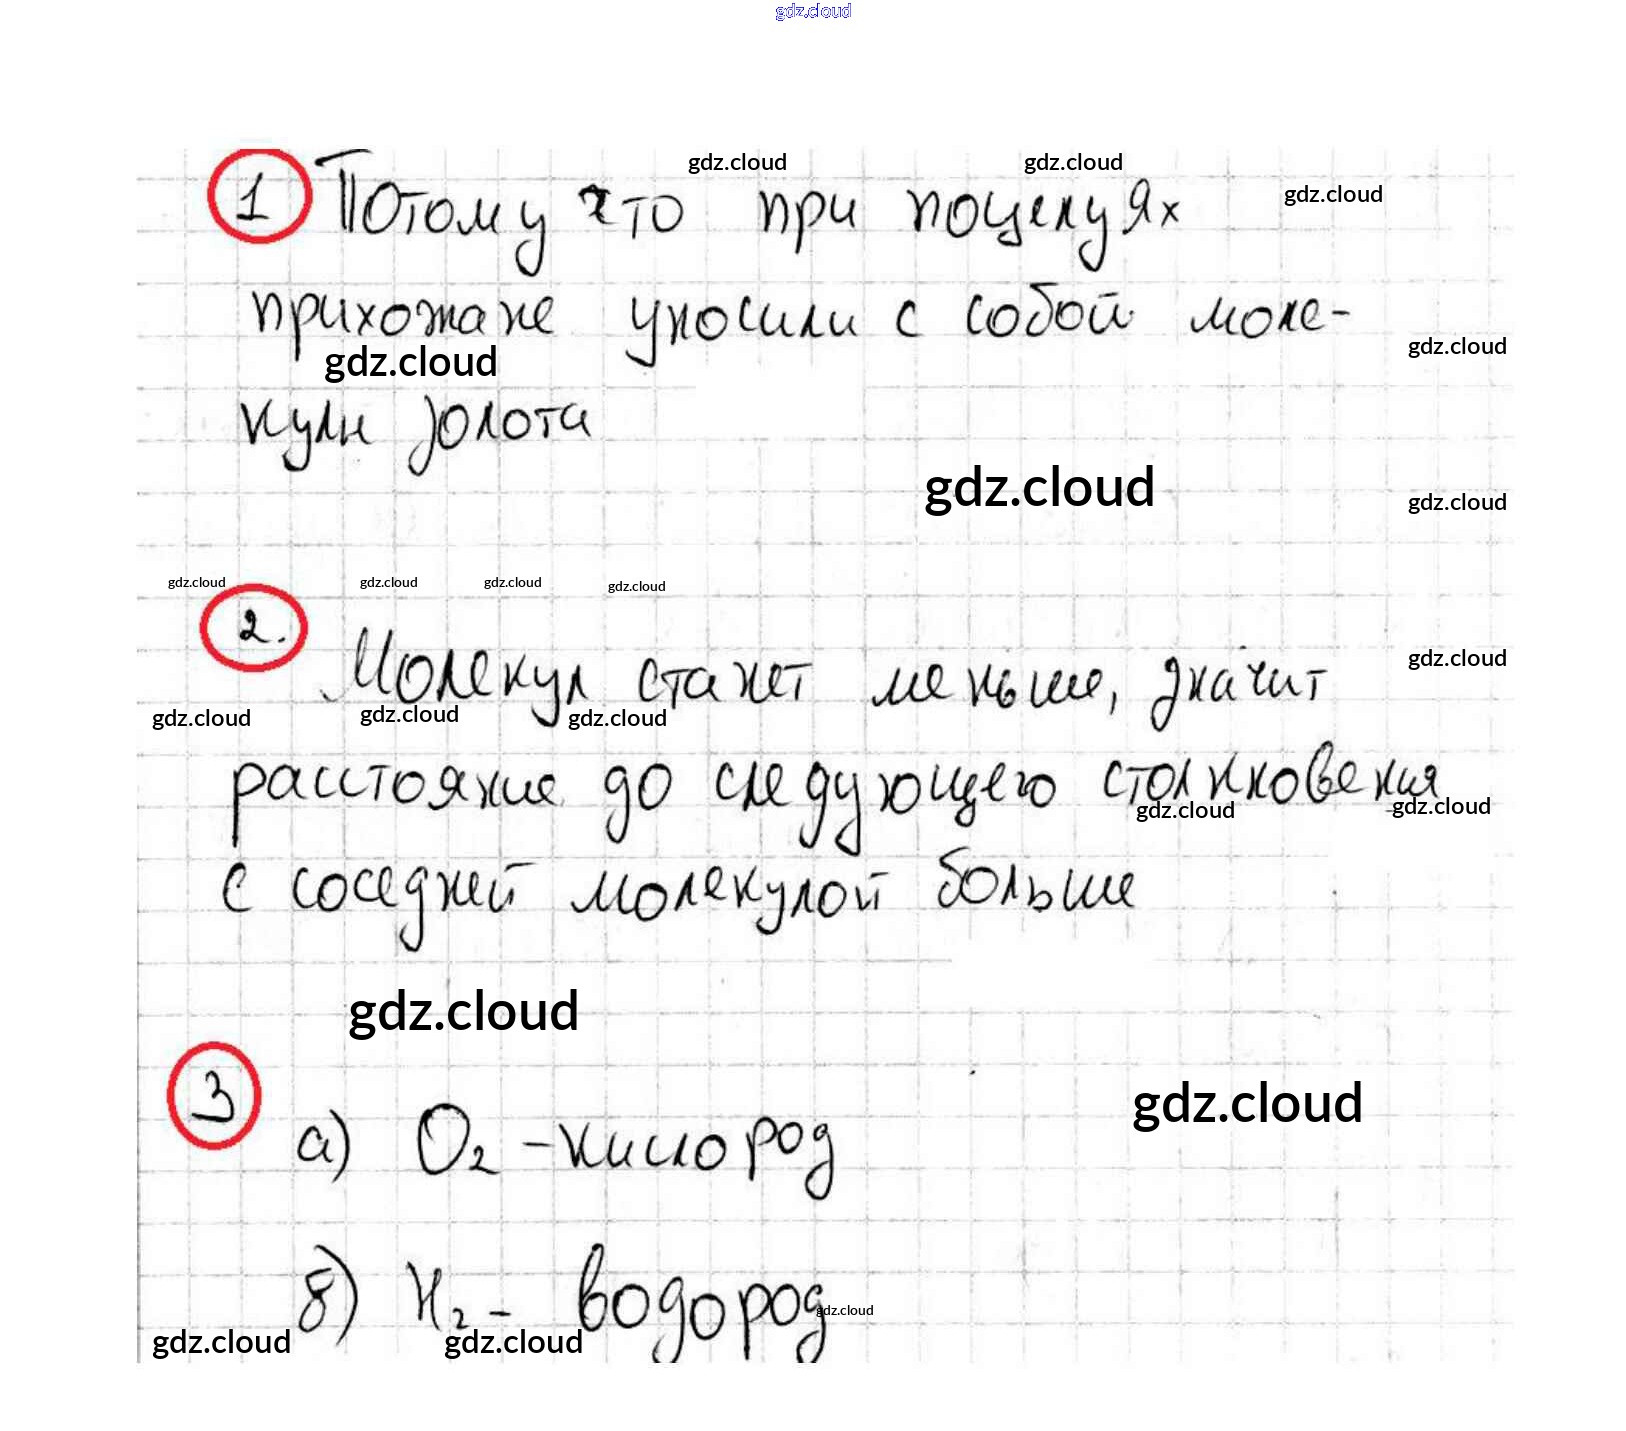 gdz.cloud
1 Потому что при поцелуях
gdz.cloud gdz.cloud gdz.cloud
прихожане уносили с собой моле-
gdz.cloud gdz.cloud
кулы золота
gdz.cloud gdz.cloud
gdz.cloud gdz.cloud gdz.cloud gdz.cloud
2. Молекул станет меньше, значит
gdz.cloud
gdz.cloud gdz.cloud gdz.cloud
расстояние до следующего столкновения
gdz.cloud gdz.cloud
с соседней молекулой больше
gdz.cloud
gdz.cloud
3 а) O₂ - кислород
б) H₂ - водород
gdz.cloud
gdz.cloud gdz.cloud